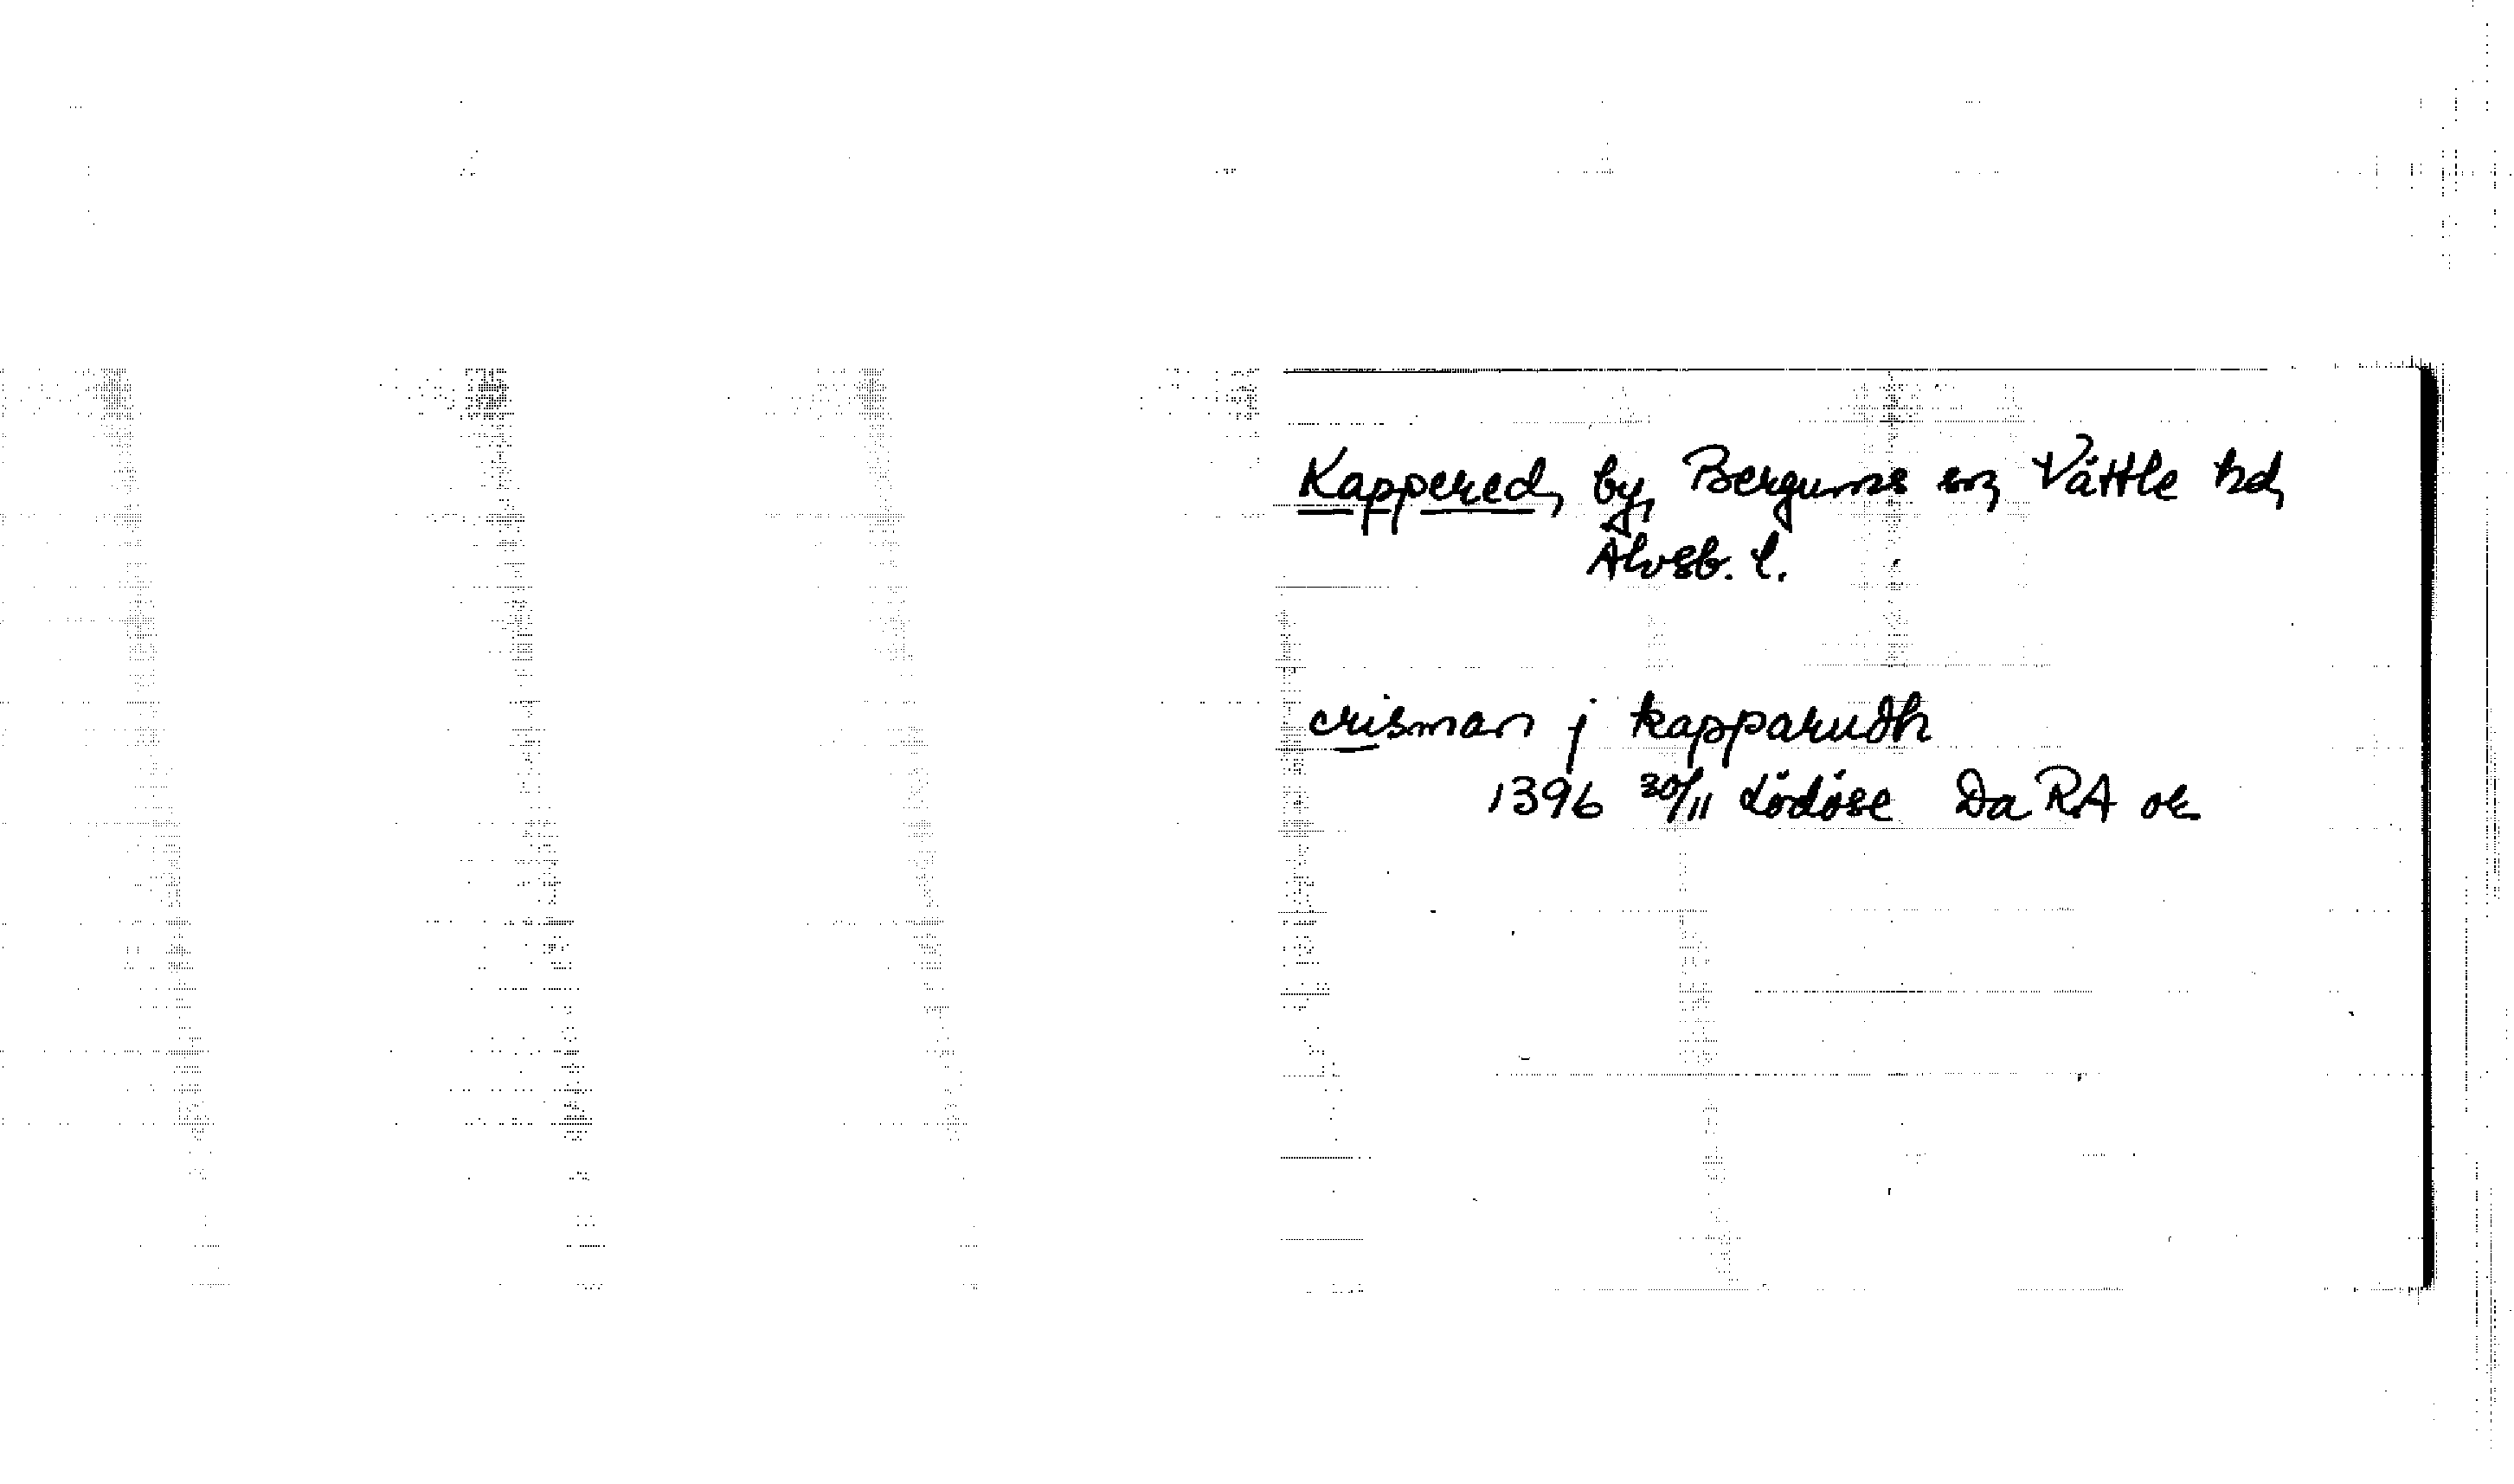 Kappered, by, Bergums sn, Vättle hd,
Älvsb. l.
crisman j kapparudh
1396 30/11 Lödöse Da RA or